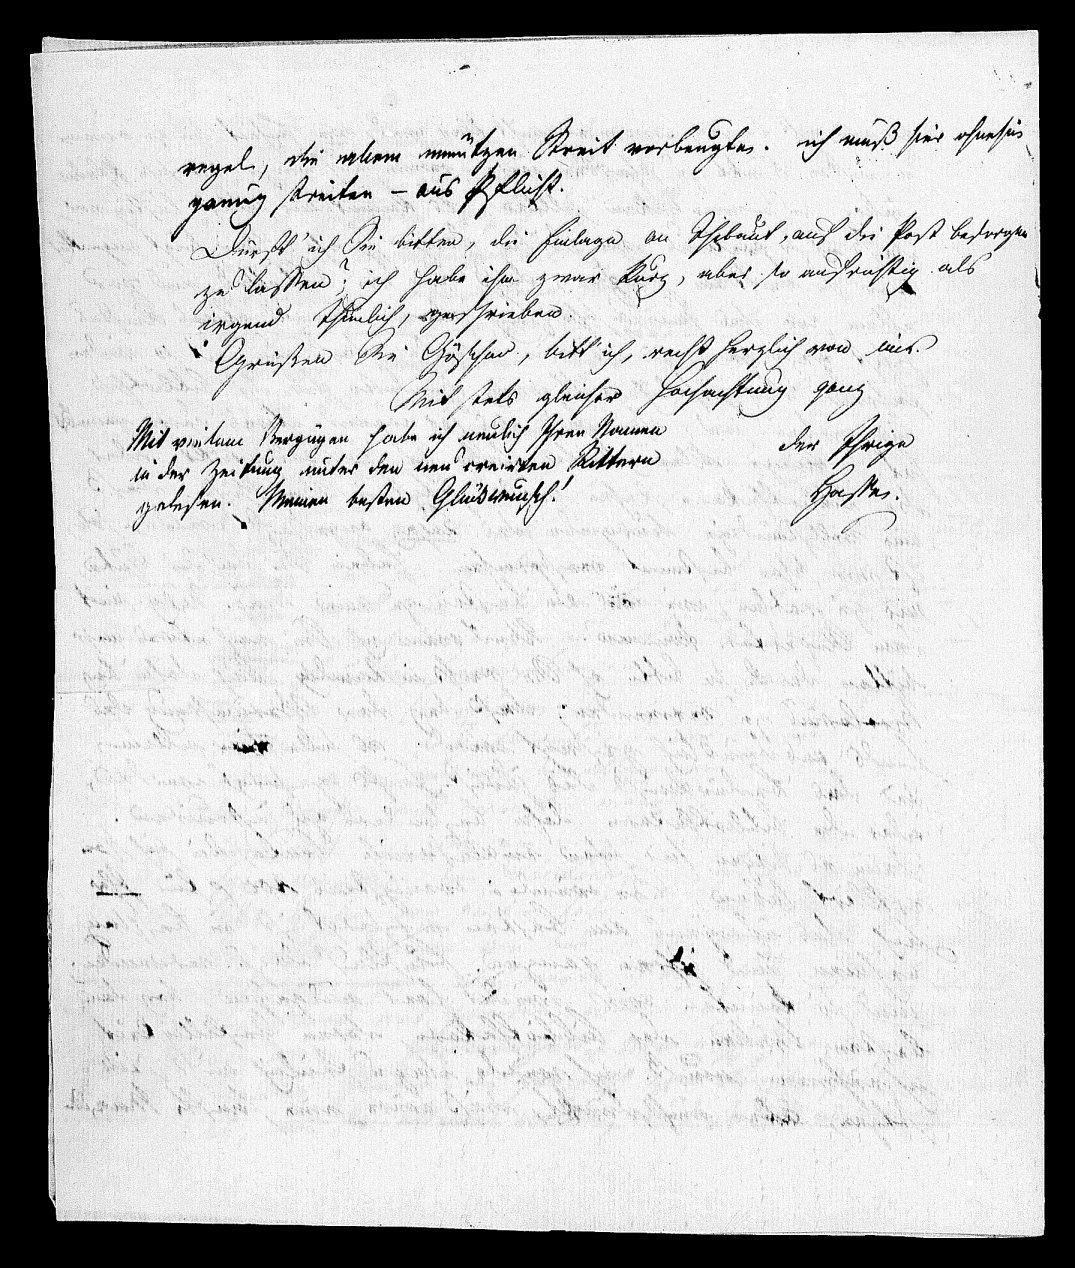 regel, die allem unnützen Streit vorbeugte. ich muß hier ohnehin
genug streiten – aus Pflicht.
Dürft' ich Sie bitten, die Einlage an Thibaut, auf die Post besorgen
zu lassen? ich habe ihm zwar kurz, aber so aufrichtig als
irgend thunlich, geschrieben.
Grüßen Sie Göschen, bitt' ich, recht herzlich von uns.
Mit stets gleicher Hochachtung ganz
der Ihrige
Hasse.
Mit vielem Vergnügen habe ich neulich Ihren Namen
in der Zeitung unter den neu creirten Rittern
gelesen. Meinen besten Glückwunsch!